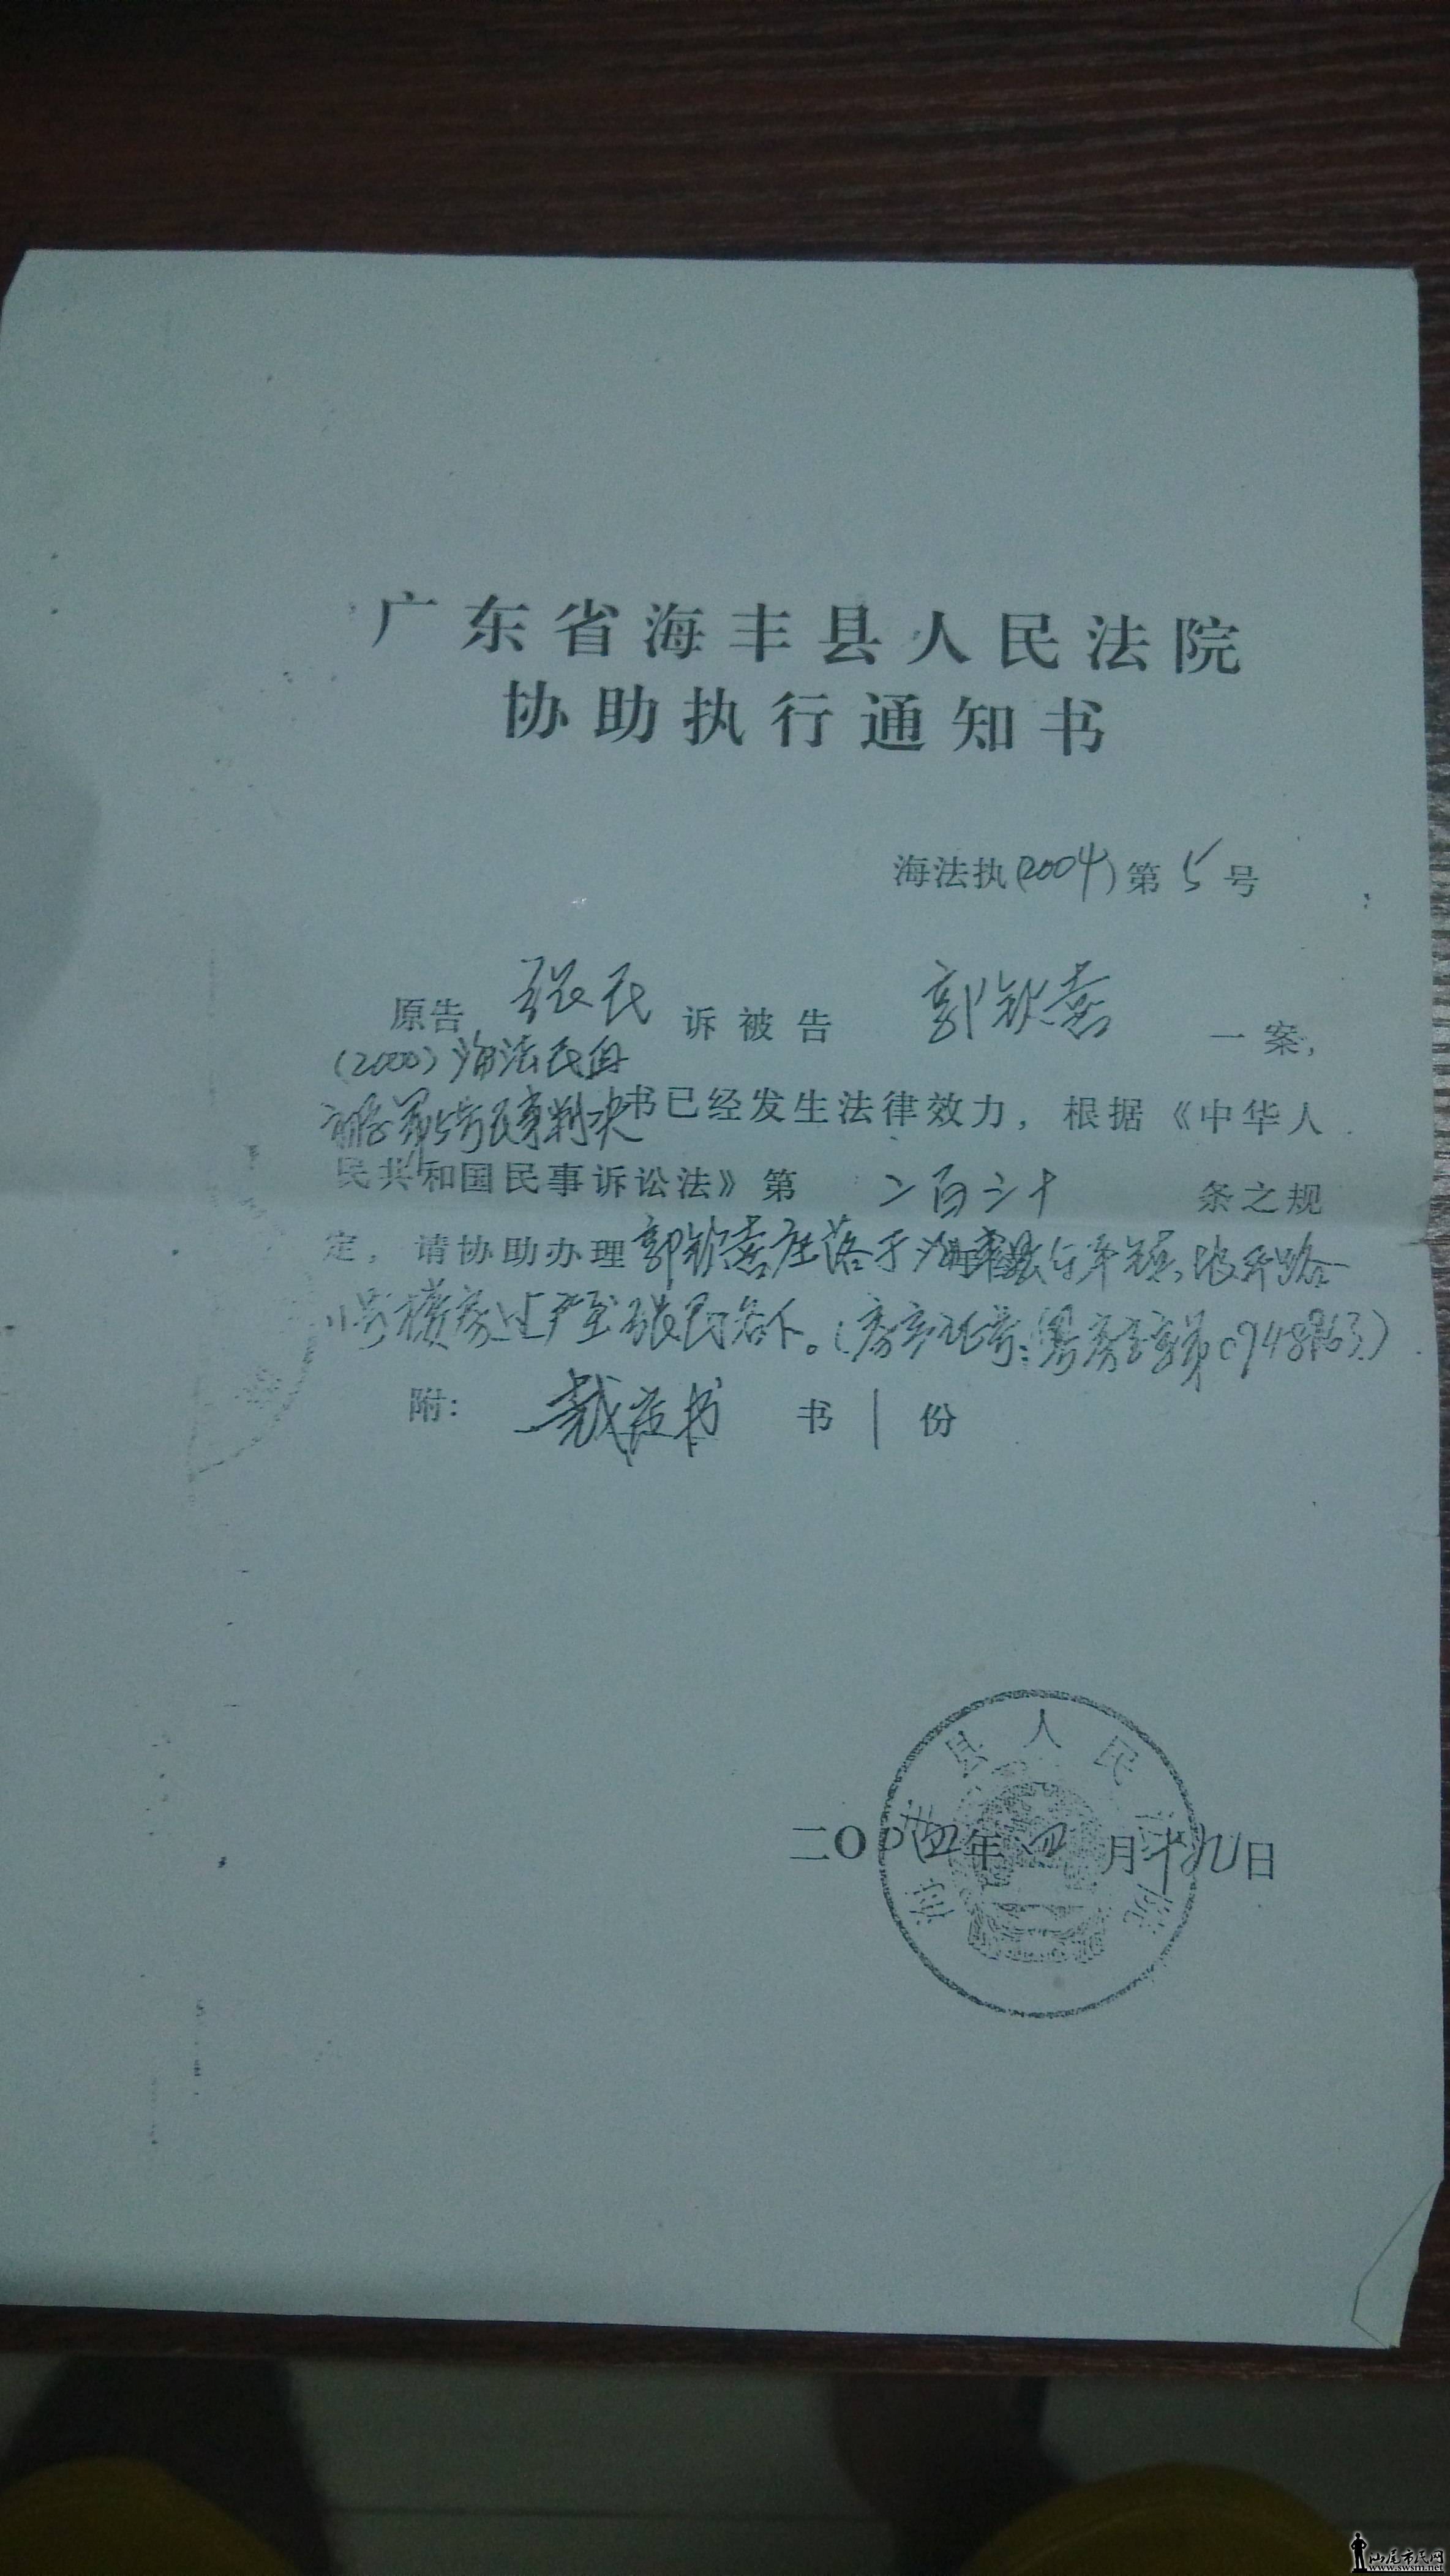 广东省海丰县人民法院
协助执行通知书
海法执(2004)第5号
原告 张民 诉被告 郭钦 一案，
(2000)海法民
民事判决书已经发生法律效力，根据《中华人
民共和国民事诉讼法》第 二百三十 条之规
定，请协助办理郭钦 座落于海丰县 镇 路
号楼房过户至张民名下。(房产证号:粤房 字第0948863)
附: 裁定书 书 1 份
海丰县人民法院
二〇〇四年四月十九日
汕尾市民网
www.swsm.net